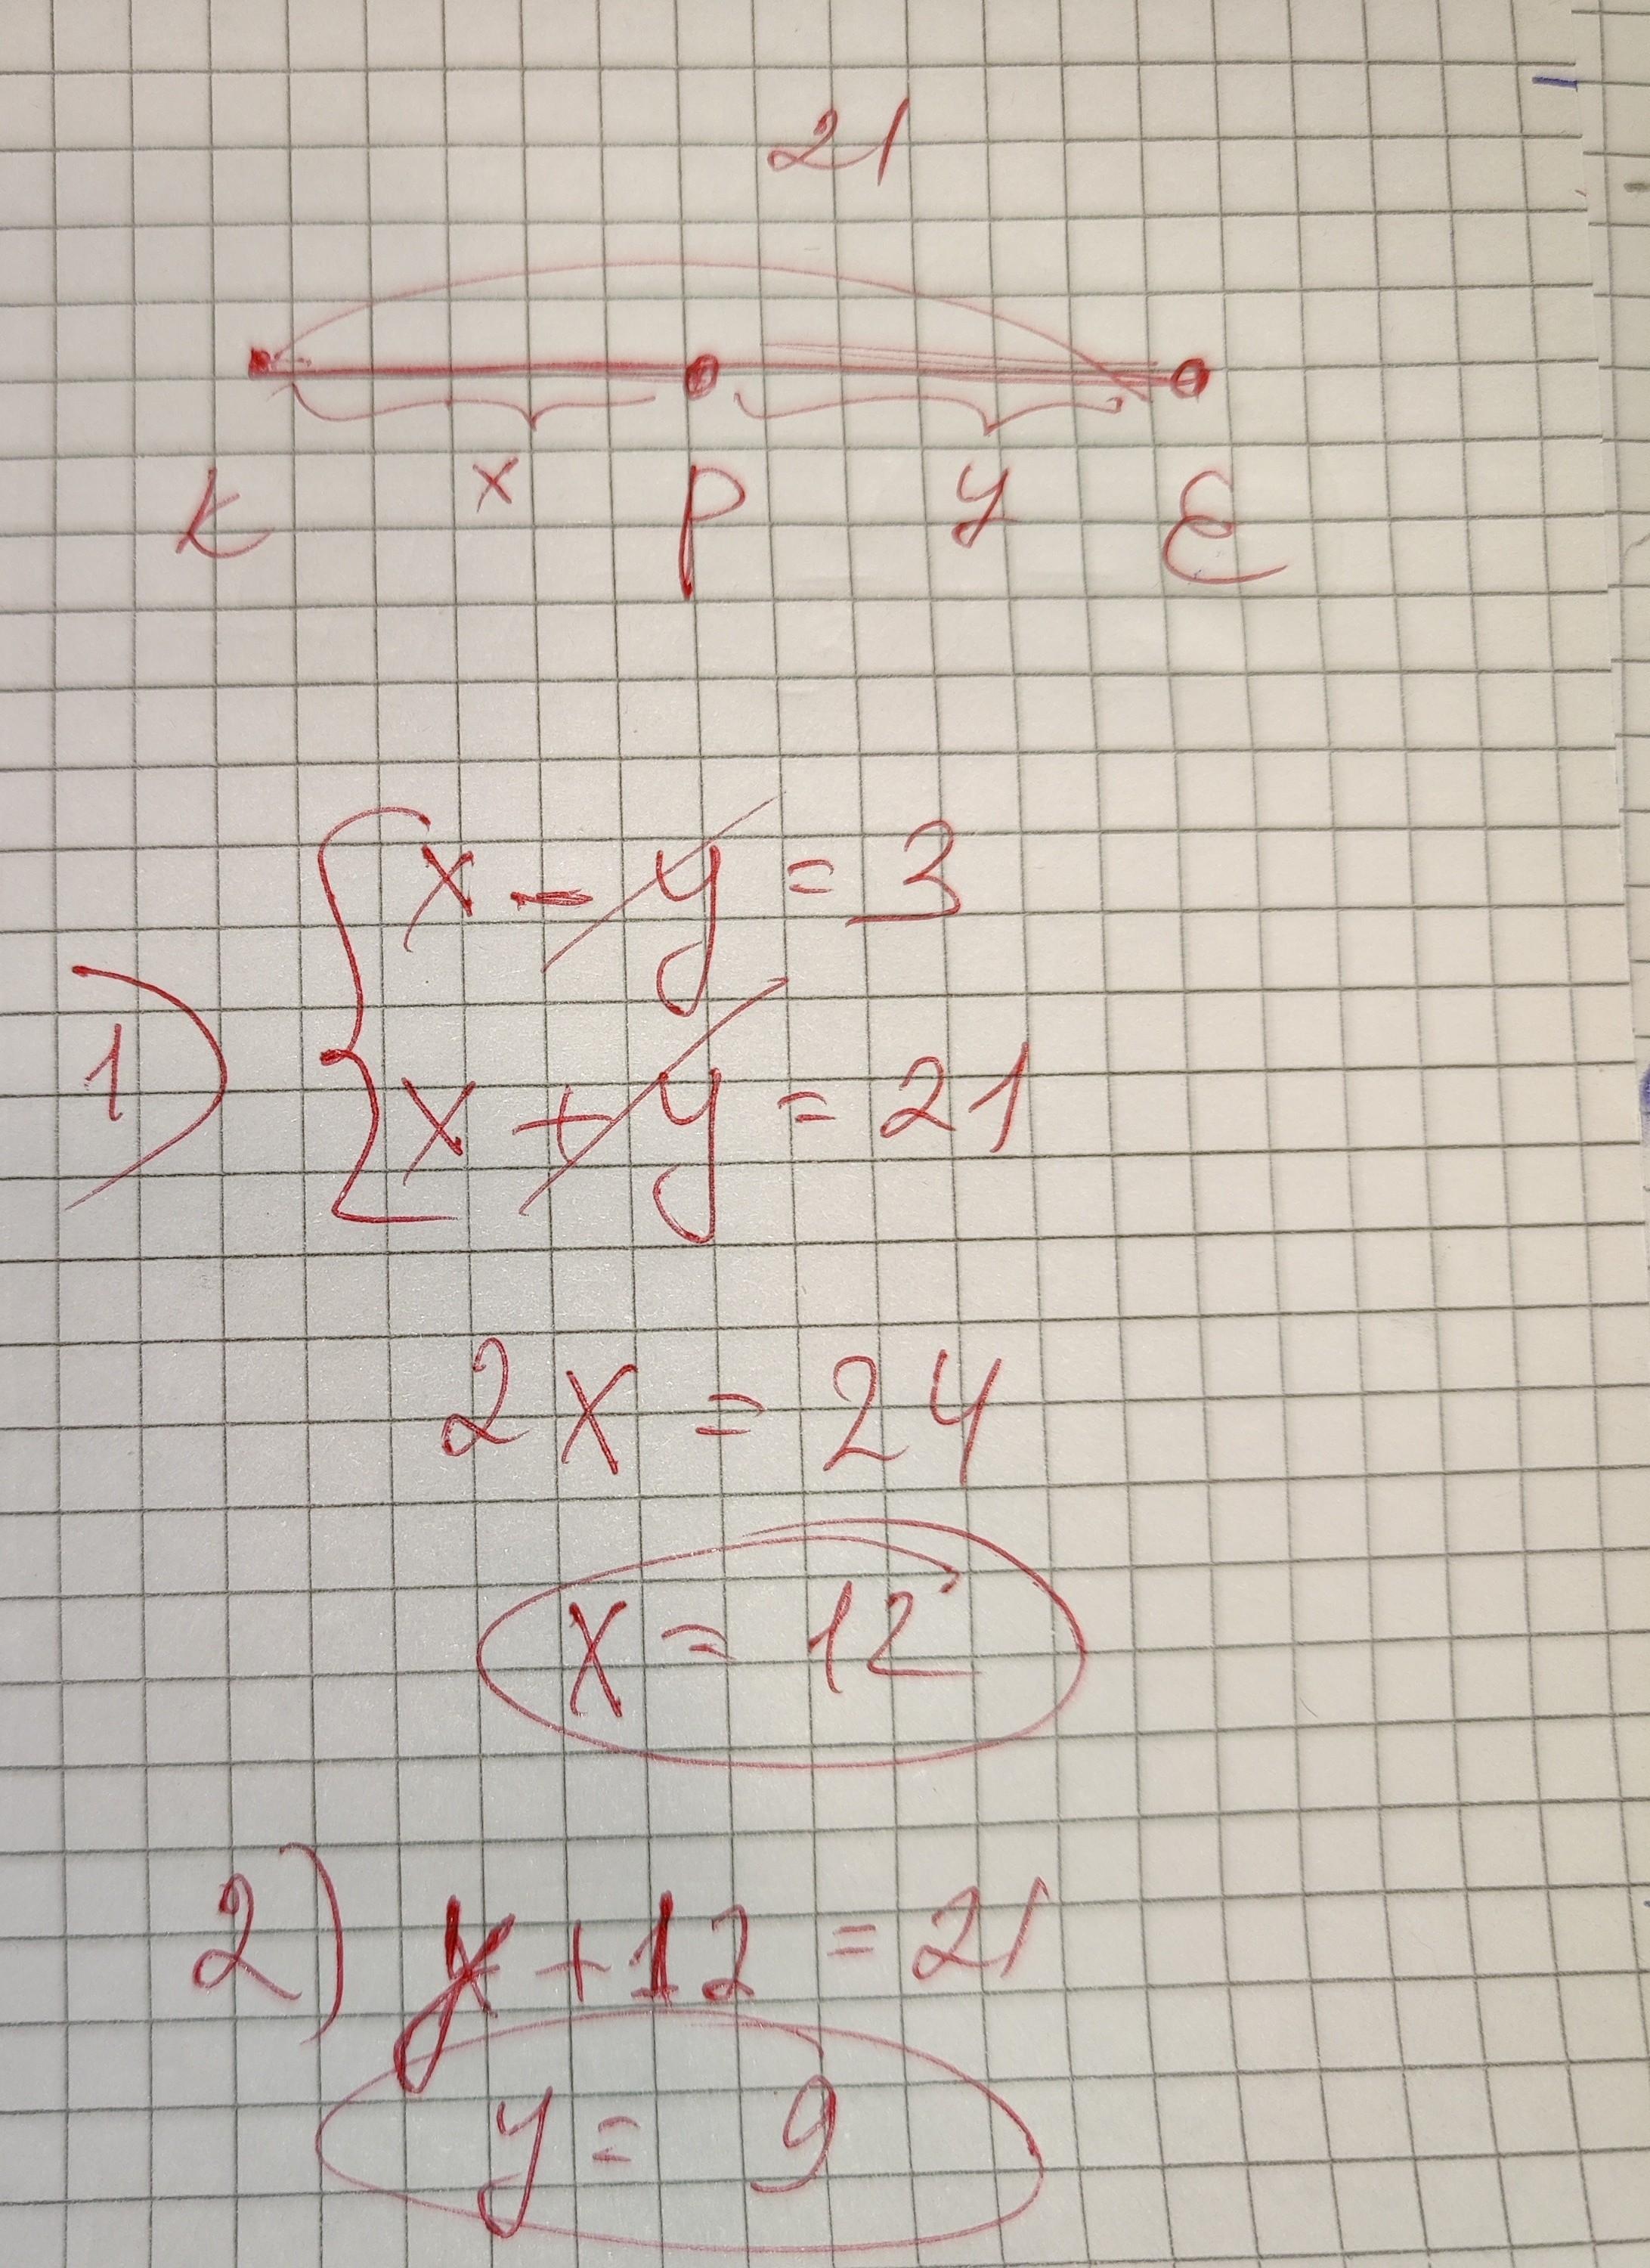 21
K x P y E
1) { x - y = 3
x + y = 21
2x = 24
x = 12
2) y + 12 = 21
y = 9